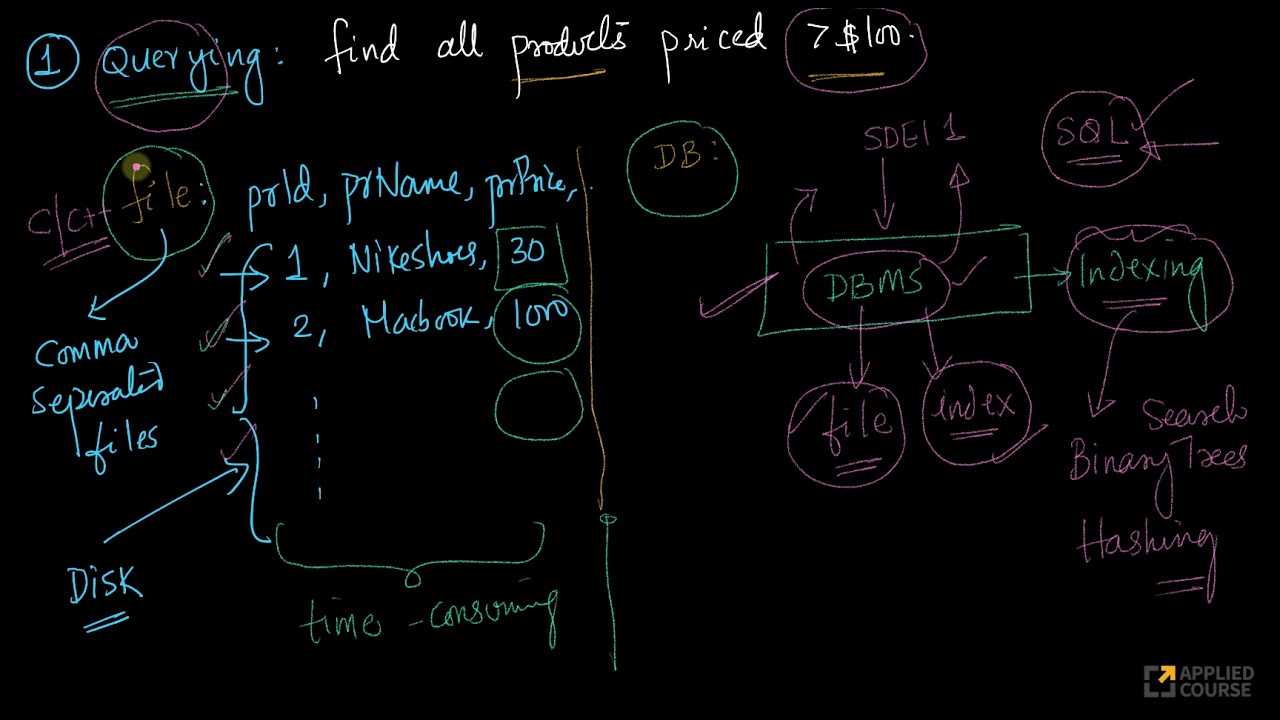 1 Querying: find all products priced >$100.
C/C++ file: prId, prName, prPrice, ..
1, Nikeshoes, 30
2, Macbook, 1000
Comma
Seperated
files
DISK
time-consuming
DB:
SDE1 1
SQL
DBMS
Indexing
file
index
Search
Binary Trees
Hashing
APPLIED
COURSE